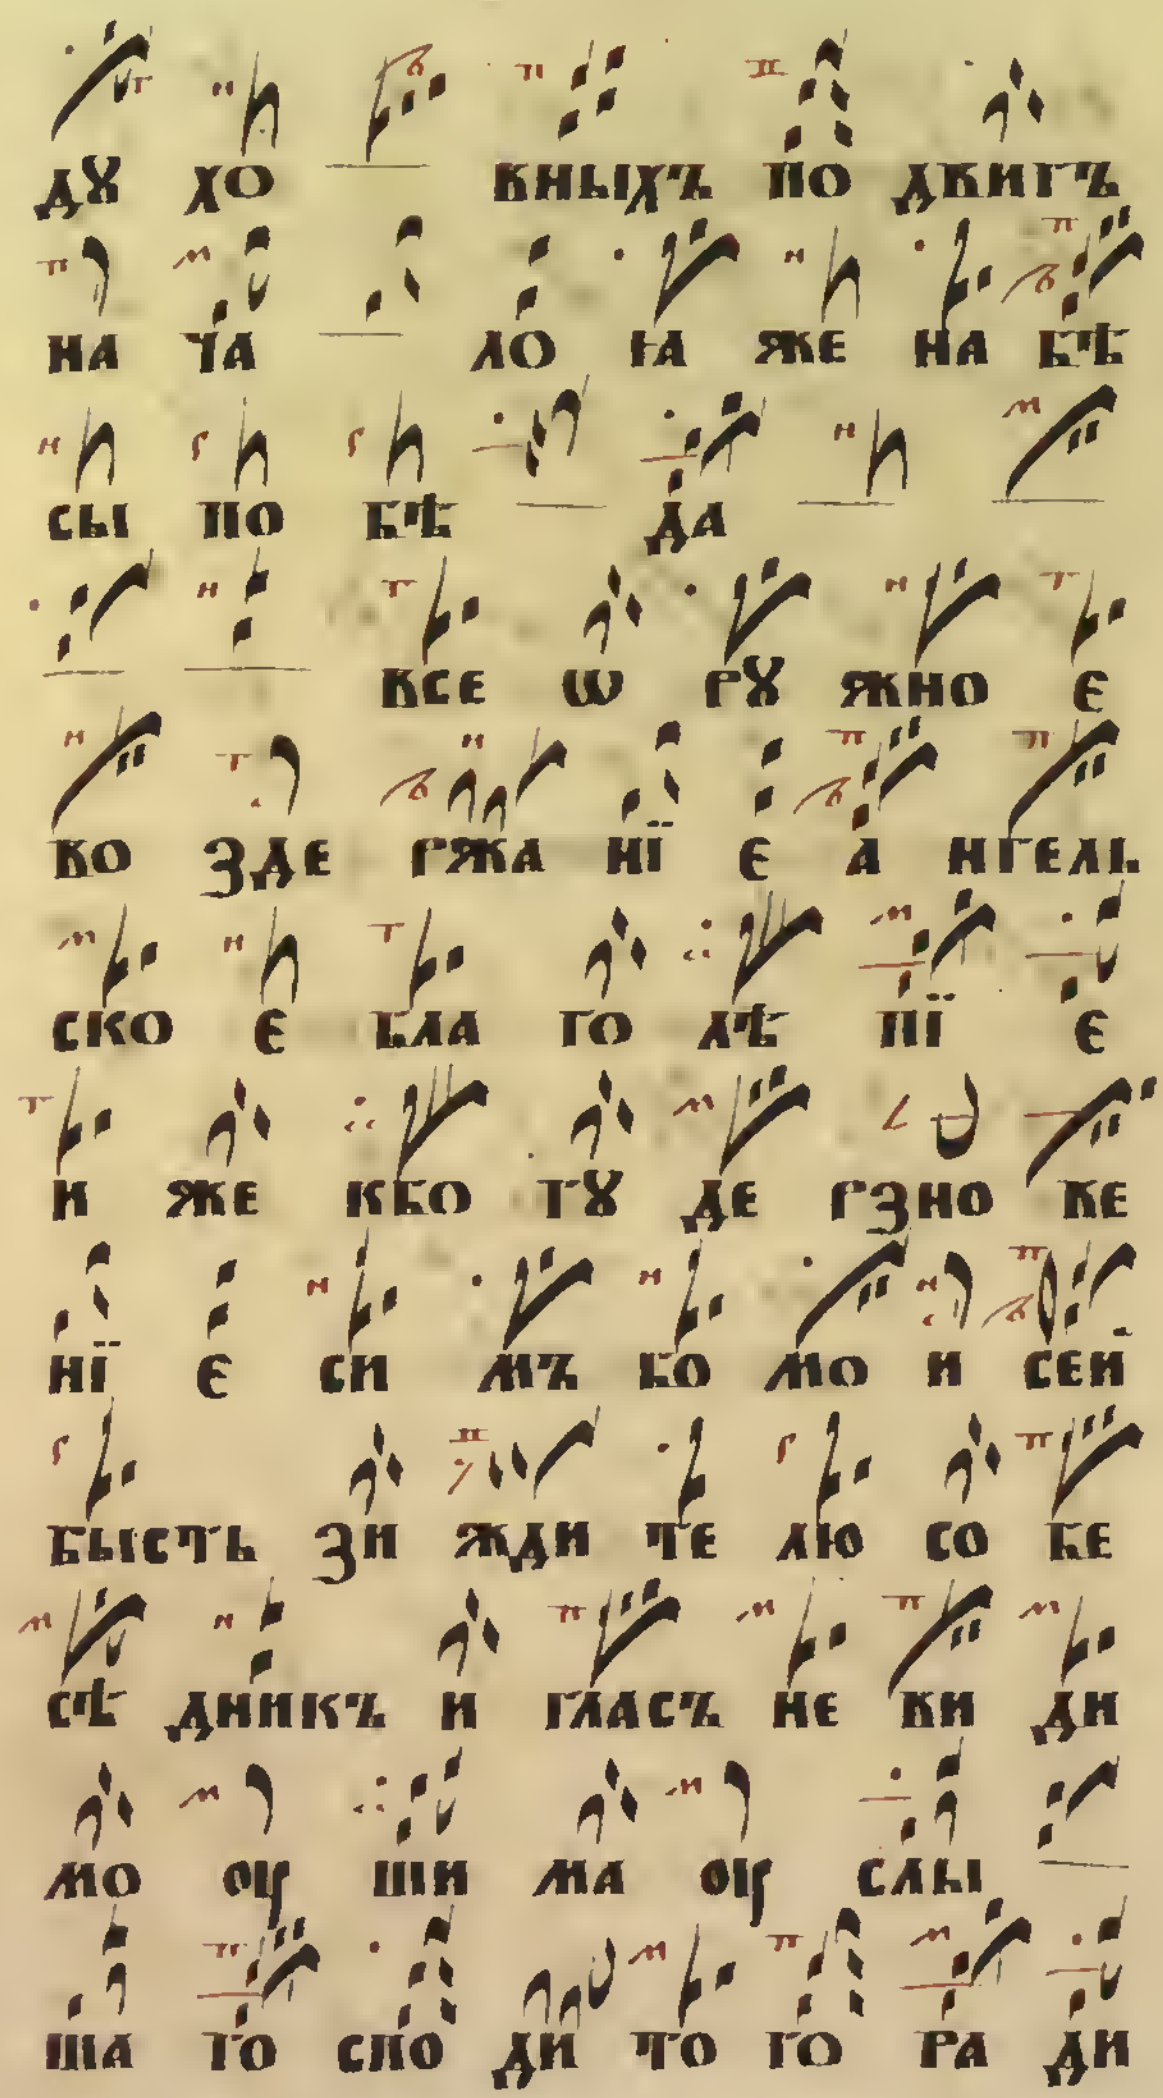 дꙋ хо вныхъ по двигъ
на ча ло ꙗ же на бѣ
сы по бѣ да
все ѡ рꙋ жно є
во зде ржа нїе є а нгель
ско є бла го лѣ пї є
и же кво тꙋ де рзно ве
нї є си мъ бо мо и сей
бысть зи жди те лю со бе
сѣ дникъ и гласъ не ви ди
мо оу ши ма оу слы
ша го спо ди того ра ди